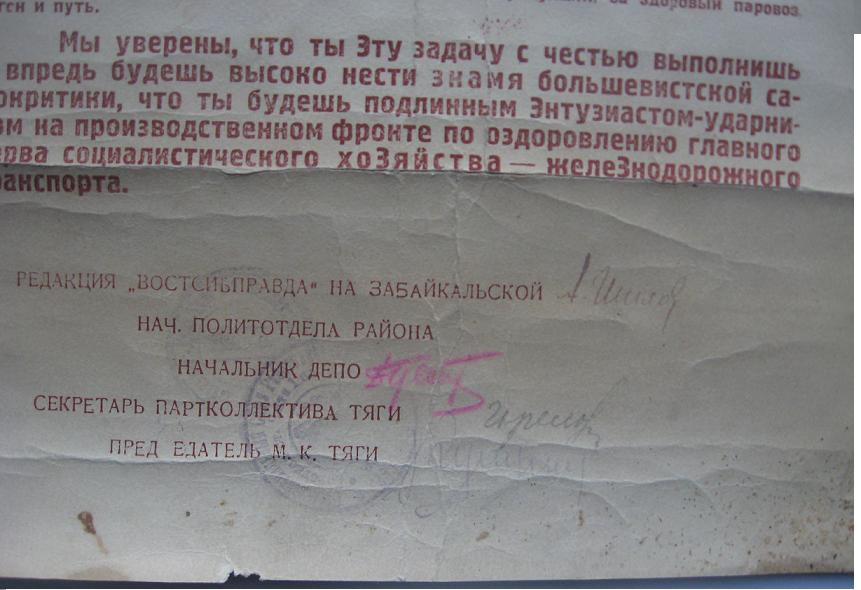 и путь. здоровый паровоз
Мы уверены, что ты Эту задачу с честью выполнишь
впредь будешь высоко нести знамя большевистской са-
окритики, что ты будешь подлинным Энтузиастом-ударни-
ом на производственном фронте по оздоровлению главного
ерва социалистического хоЗяйства — желеЗнодорожного
ранспорта.
РЕДАКЦИЯ „ВОСТСИБПРАВДА" НА ЗАБАЙКАЛЬСКОЙ
НАЧ. ПОЛИТОТДЕЛА РАЙОНА
НАЧАЛЬНИК ДЕПО
СЕКРЕТАРЬ ПАРТКОЛЛЕКТИВА ТЯГИ
ПРЕД ЕДАТЕЛЬ М. К. ТЯГИ